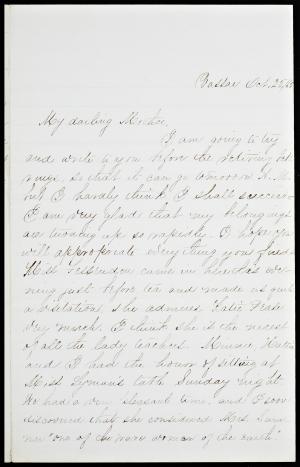 Vassar Oct. 25,
My darling Mother,
I am going to try
and write to you before the retiring bell
rings, so that it can go tomorrow A.M.
but I hardly think I shall succeed.
I am very glad that my belongings
are turning up so rapidly. I hope you
will appropriate everything you find.
Miss came in here this eve-
ning just before tea and made us quite
a visitation, she admires Katie
very much. I think she is the nicest
of all the lady teachers. Minnie
and I had the honor of sitting at
Miss Lyman's table Sunday night.
We had a very pleasant time, and I soon
discovered that she considered Mrs.
"one of the rare women of the earth."